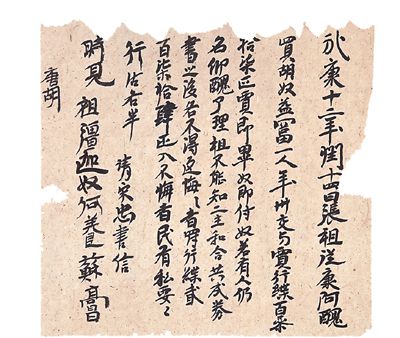 永康十二年閏十四日張祖從康阿醜
買胡奴益富一人年卅交与賈行緤百叁
拾柒疋賈即畢奴即付奴若有人仍
名仰醜了理祖不能知二主和合共成券
書之後各不得返悔〻者罰行緤貳
百柒拾肆疋入不悔者民有私要〻
行沽各半 請宋忠書信
時見 祖彊迦奴何養蘇高昌
唐胡